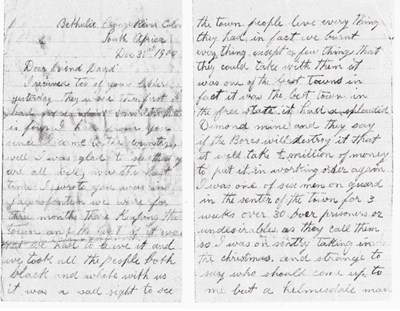 Bethulie Orange River Colo
South Africa
Dec 31st 1900
Dear Friend David
I received too of your letters
yesterday they were from first I
had
is from I have from you
since I come to the country
well I was glad to see they
are all well was the last
time I wrote you was in
Jagersfontein we were for
three months there Keeping the
town and the end of it was
that we had to leave it and
we took all the people both
black and white with us
it was a sad sight to see
the town people leve everything
they had, in fact we burnt
everything except a few things that
they could take with them it
was one of the best towns in
fact it was the best town in
the free state it had a splended
Dimond mine and they say
if the Bores will destroy it that
it will take ½ million of money
to put it in working order again.
I was one of six men on guard
in the senter of the town for 3
weeks over 30 bover prisoners or
undesirables as they call them
so I was on sentry taking in
the christmas, and strange to
say who should come up to
me but a helmesdale man